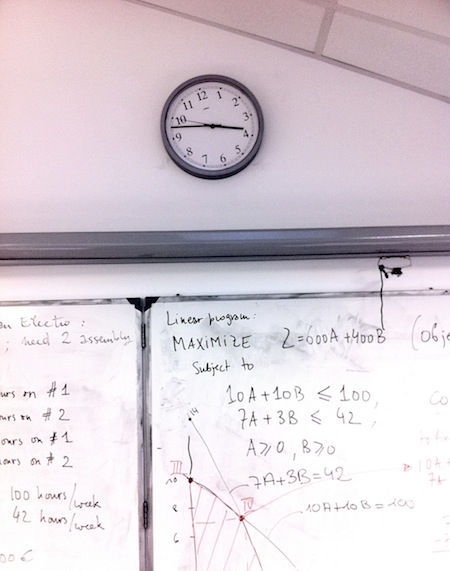 12
1
2
3
4
5
6
7
8
9
10
11
Electro :
; need 2 assembly
on #1
on # 2
on #1
on # 2
100 hours/week
42 hours/week
00 €
Linear program:
MAXIMIZE Z=600A+400B (Obje
Subject to
10A+10B ≤ 100,
7A+3B ≤ 42,
A≥0, B≥0
14
III
10
8
6
7A+3B=42
IV
10A+10B=100
co
10A
7A